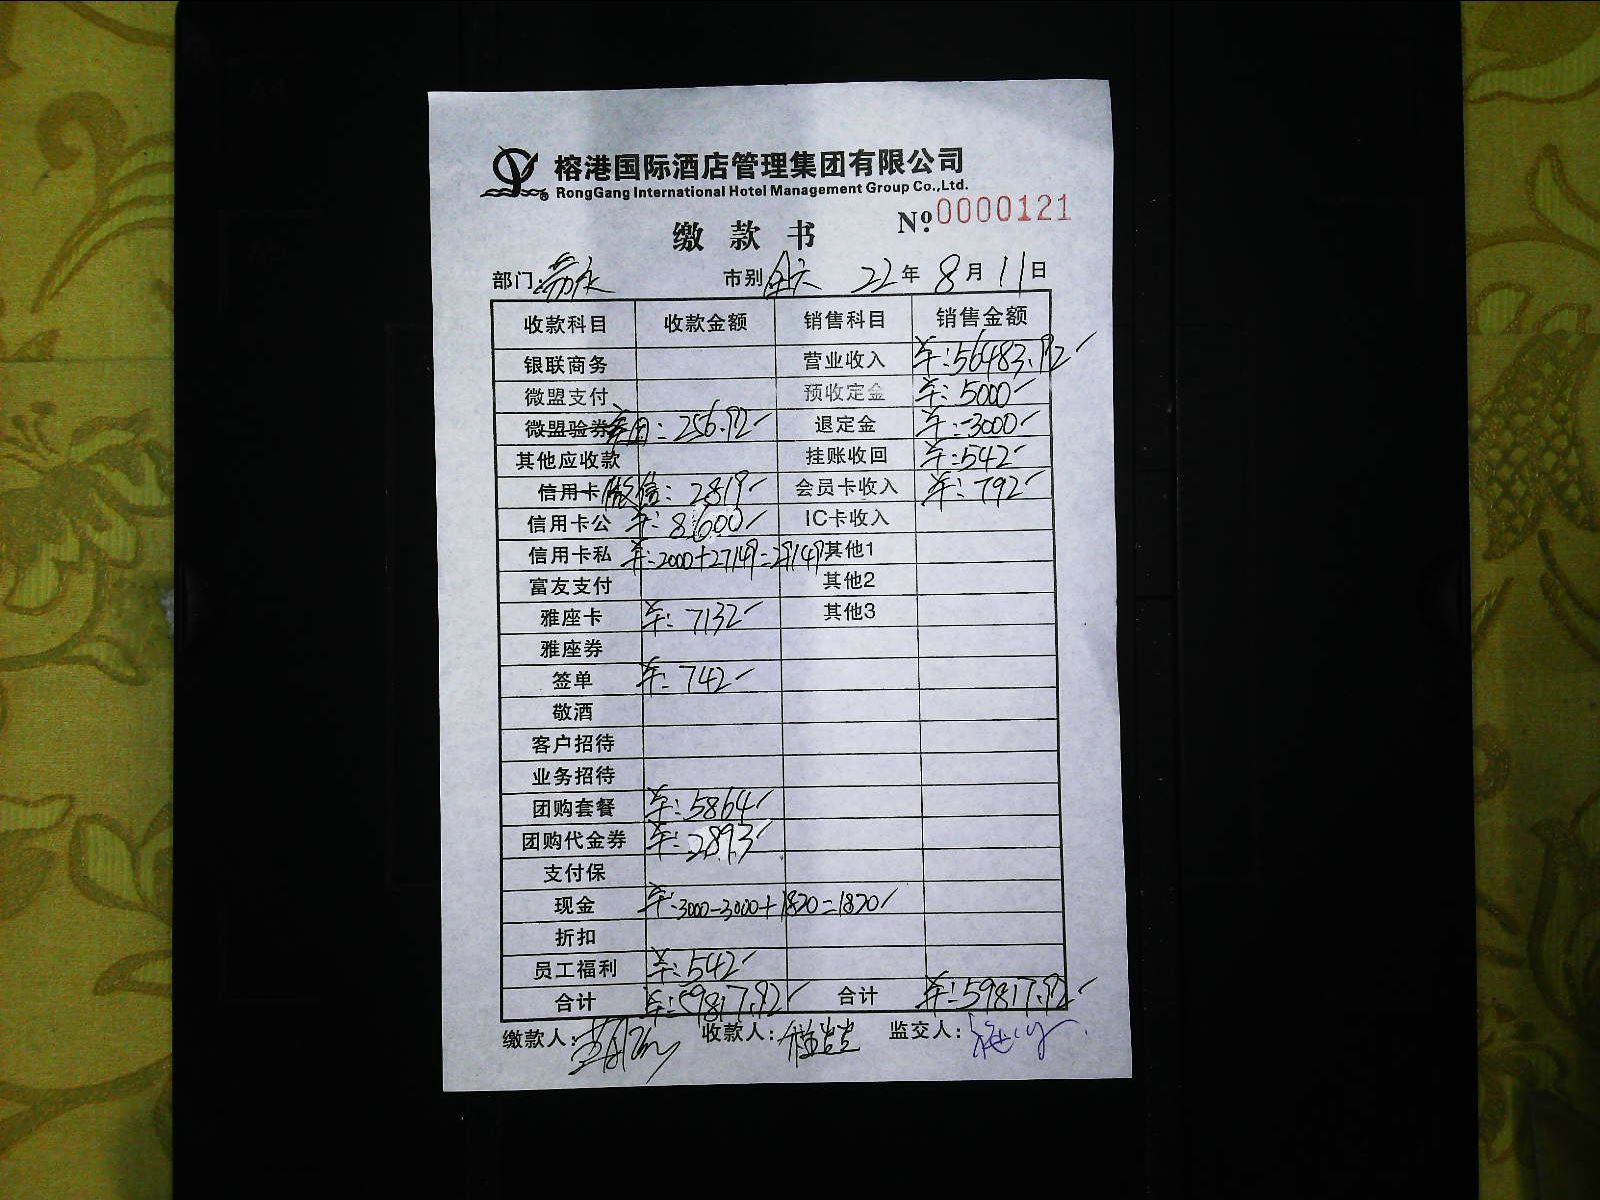 榕港国际酒店管理集团有限公司
RongGang International Hotel Management Group Co.,Ltd.
缴款书 №:0000121
部门: 市别 22年8月11日
收款科目 收款金额 销售科目 销售金额
银联商务 营业收入 ¥:56483.92
微盟支付 预收定金 ¥:5000
微盟验券 : 256.92 退定金 ¥:-3000
其他应收款 挂账收回 ¥:542
信用卡 微信: 2819 会员卡收入 ¥:792
信用卡公 ¥:8600 IC卡收入
信用卡私 ¥:2000+27149=29149 其他1
富友支付 其他2
雅座卡 ¥:7132 其他3
雅座券
签单 ¥:742
敬酒
客户招待
业务招待
团购套餐 ¥:5864
团购代金券 ¥:2893
支付保
现金 ¥:3000-3000+1820=1820
折扣
员工福利 ¥:542
合计 ¥:59817.92 合计 ¥:59817.92
缴款人: 收款人: 监交人: